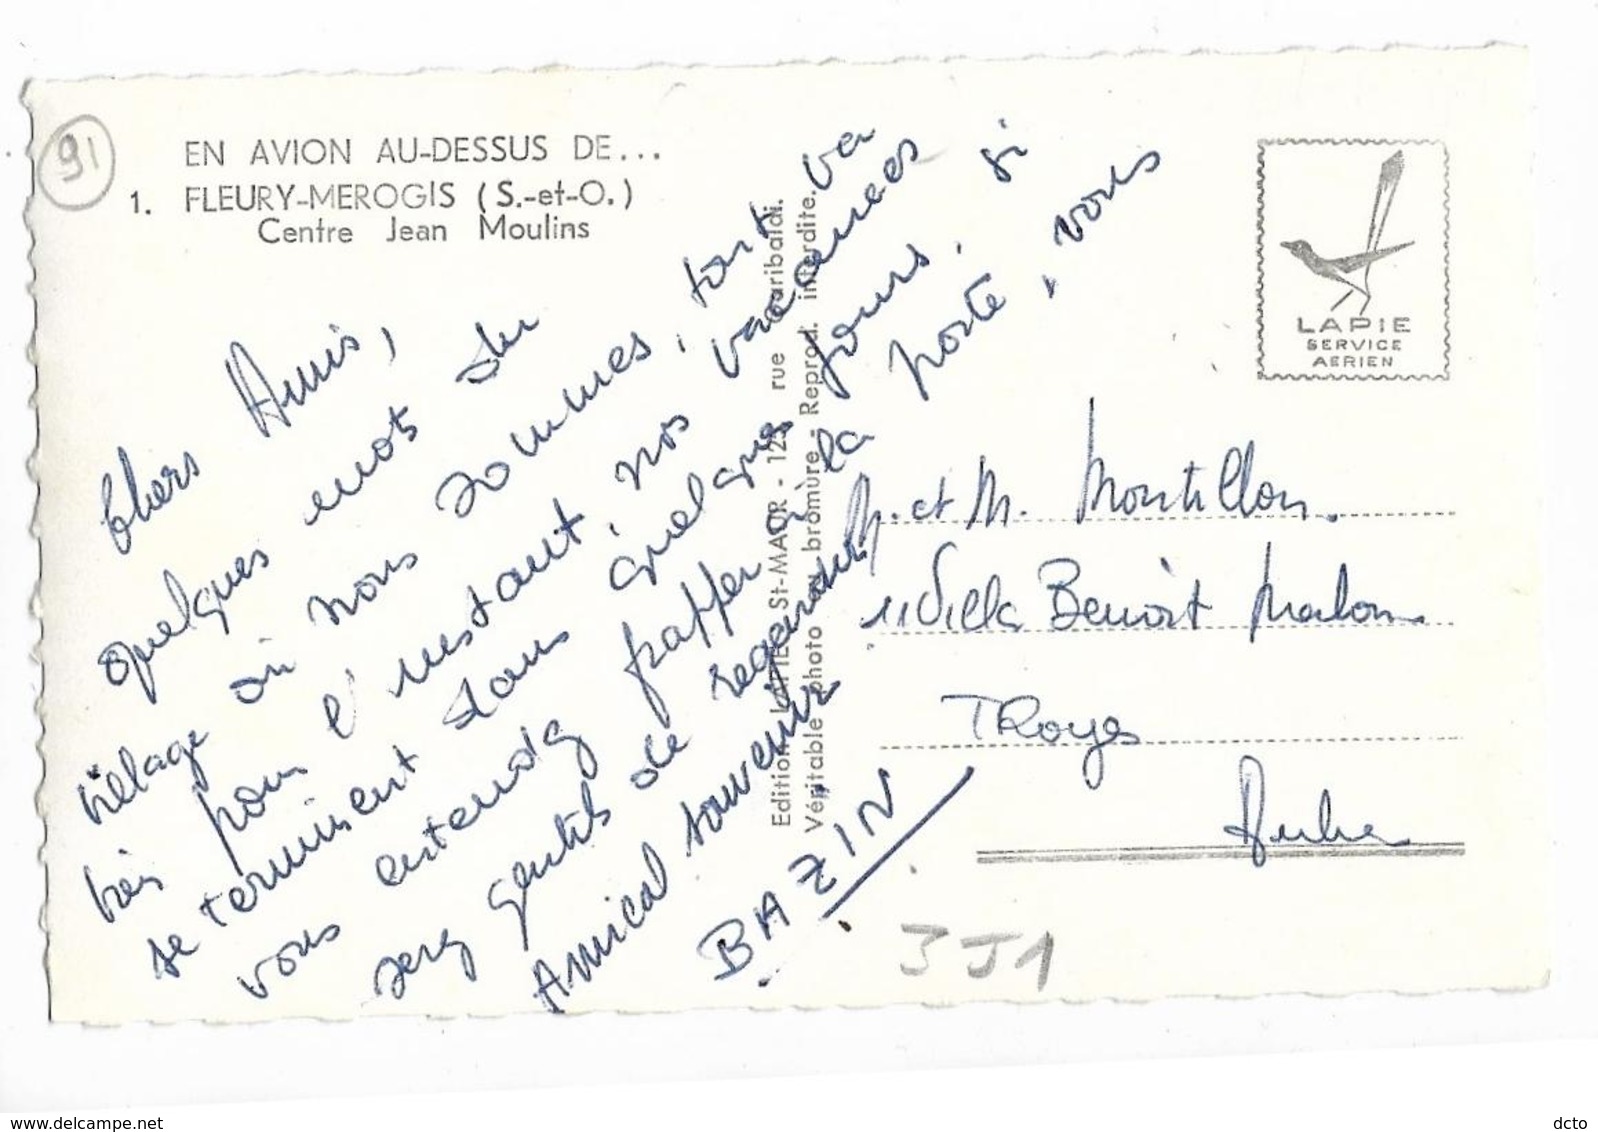 91
EN AVION AU-DESSUS DE...
1. FLEURY-MEROGIS (S.-et-O.)
Centre Jean Moulins
LAPIE
SERVICE
AERIEN
Chers Amis,
quelques mots du
village où nous sommes, tout va
très pour l'instant, nos vacances
se terminent dans quelques jours. si
vous entendez frapper à la porte, vous
serez gentils de regarder
Amical souvenir
BAZIN
Edition LAPIE St-MAUR - 123 rue Garibaldi.
Véritable photo au bromure - Reprod. interdite.
M. et M. Montillon.
11 Villa Benoit Malon
TRoyes
Aube
3J1
www.delcampe.net
dcto